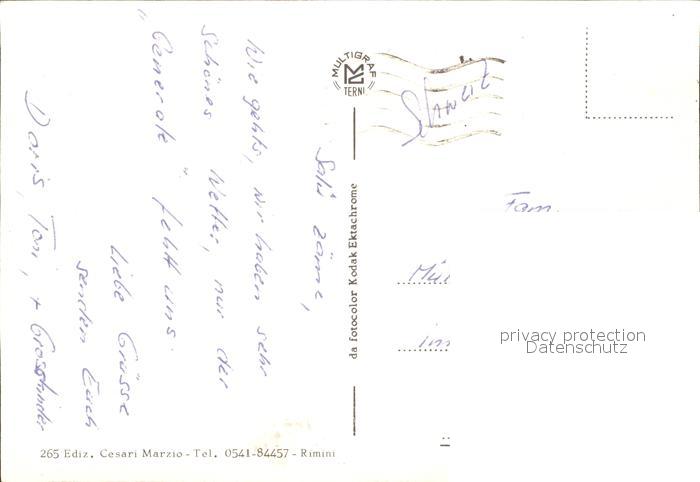 Salü zäme,
Wie gehts, wir haben sehr
schönes Wetter, nur der
"Generale" fehlt uns.
Liebe Grüsse
senden Euch
Doris, Toni, + Grosskinder
MULTIGRAF
TERNI
da fotocolor Kodak Ektachrome
Fam.
im
privacy protection
Datenschutz
265 Ediz. Cesari Marzio - Tel. 0541-84457 - Rimini